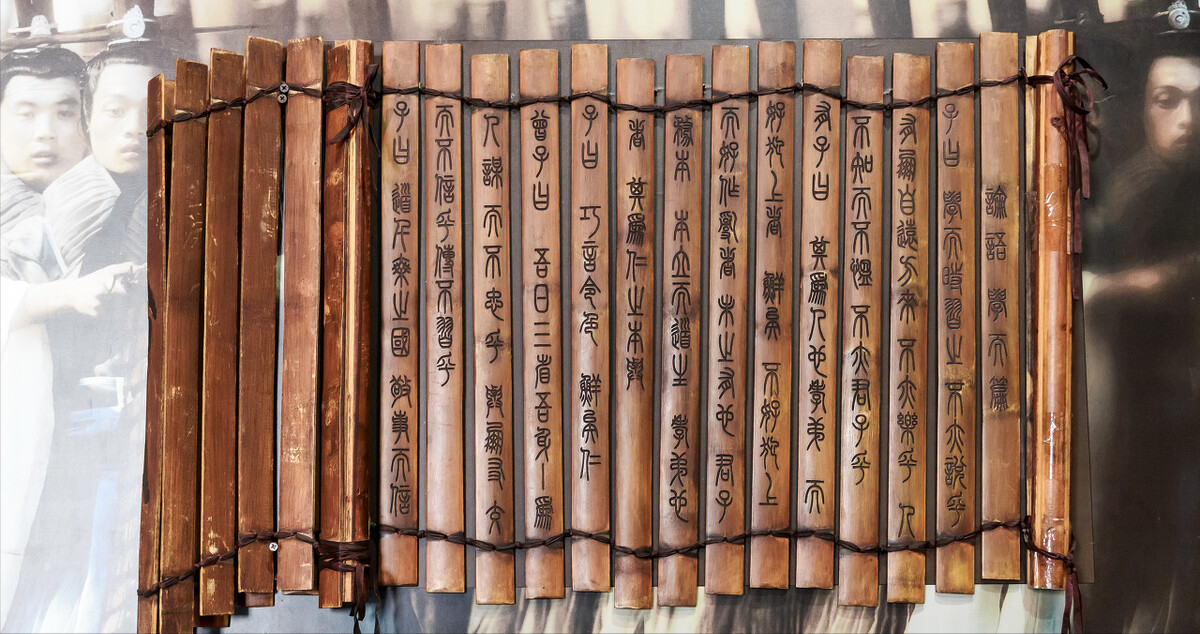 論語 學而篇
子曰 學而時習之 不亦說乎
有朋自遠方來 不亦樂乎 人
不知而不慍 不亦君子乎
有子曰 其爲人也孝弟 而
好犯上者 鮮矣 不好犯上
而好作亂者 未之有也 君子
務本 本立而道生 孝弟也
者 其爲仁之本與
子曰 巧言令色 鮮矣仁
曾子曰 吾日三省吾身 爲
人謀 而不忠乎 與朋友交
而不信乎 傳不習乎
子曰 道千乘之國 敬事而信